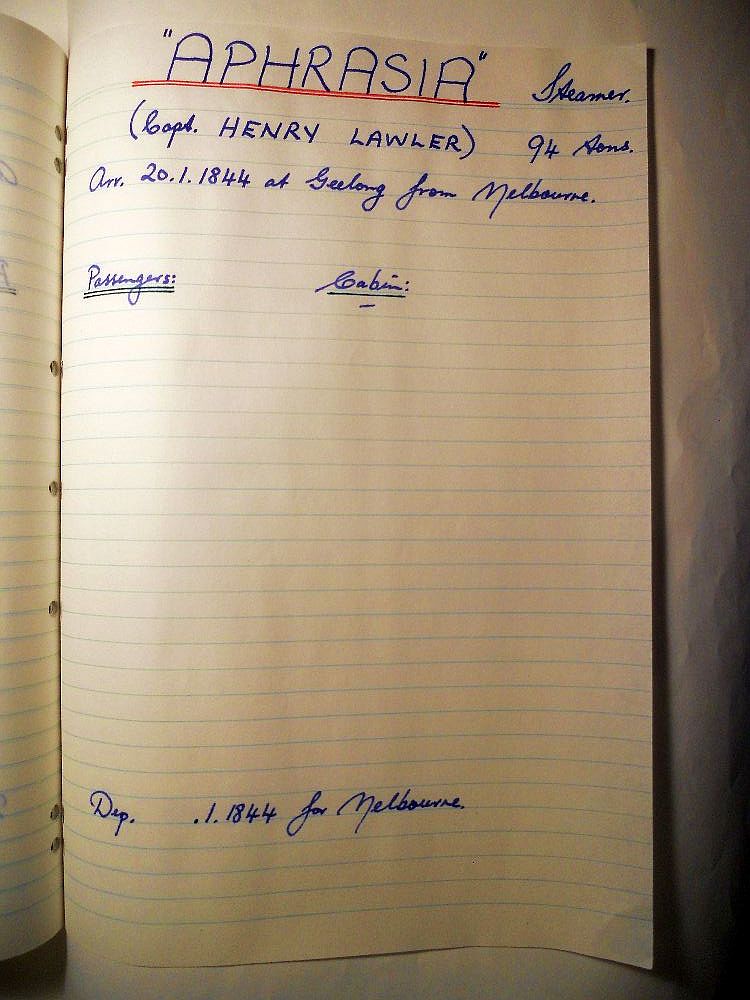 "APHRASIA" Steamer.
(Capt. HENRY LAWLER) 94 tons.
Arr. 20.1.1844 at Geelong from Melbourne.
Passengers: Cabin:
–
Dep. .1.1844 for Melbourne.